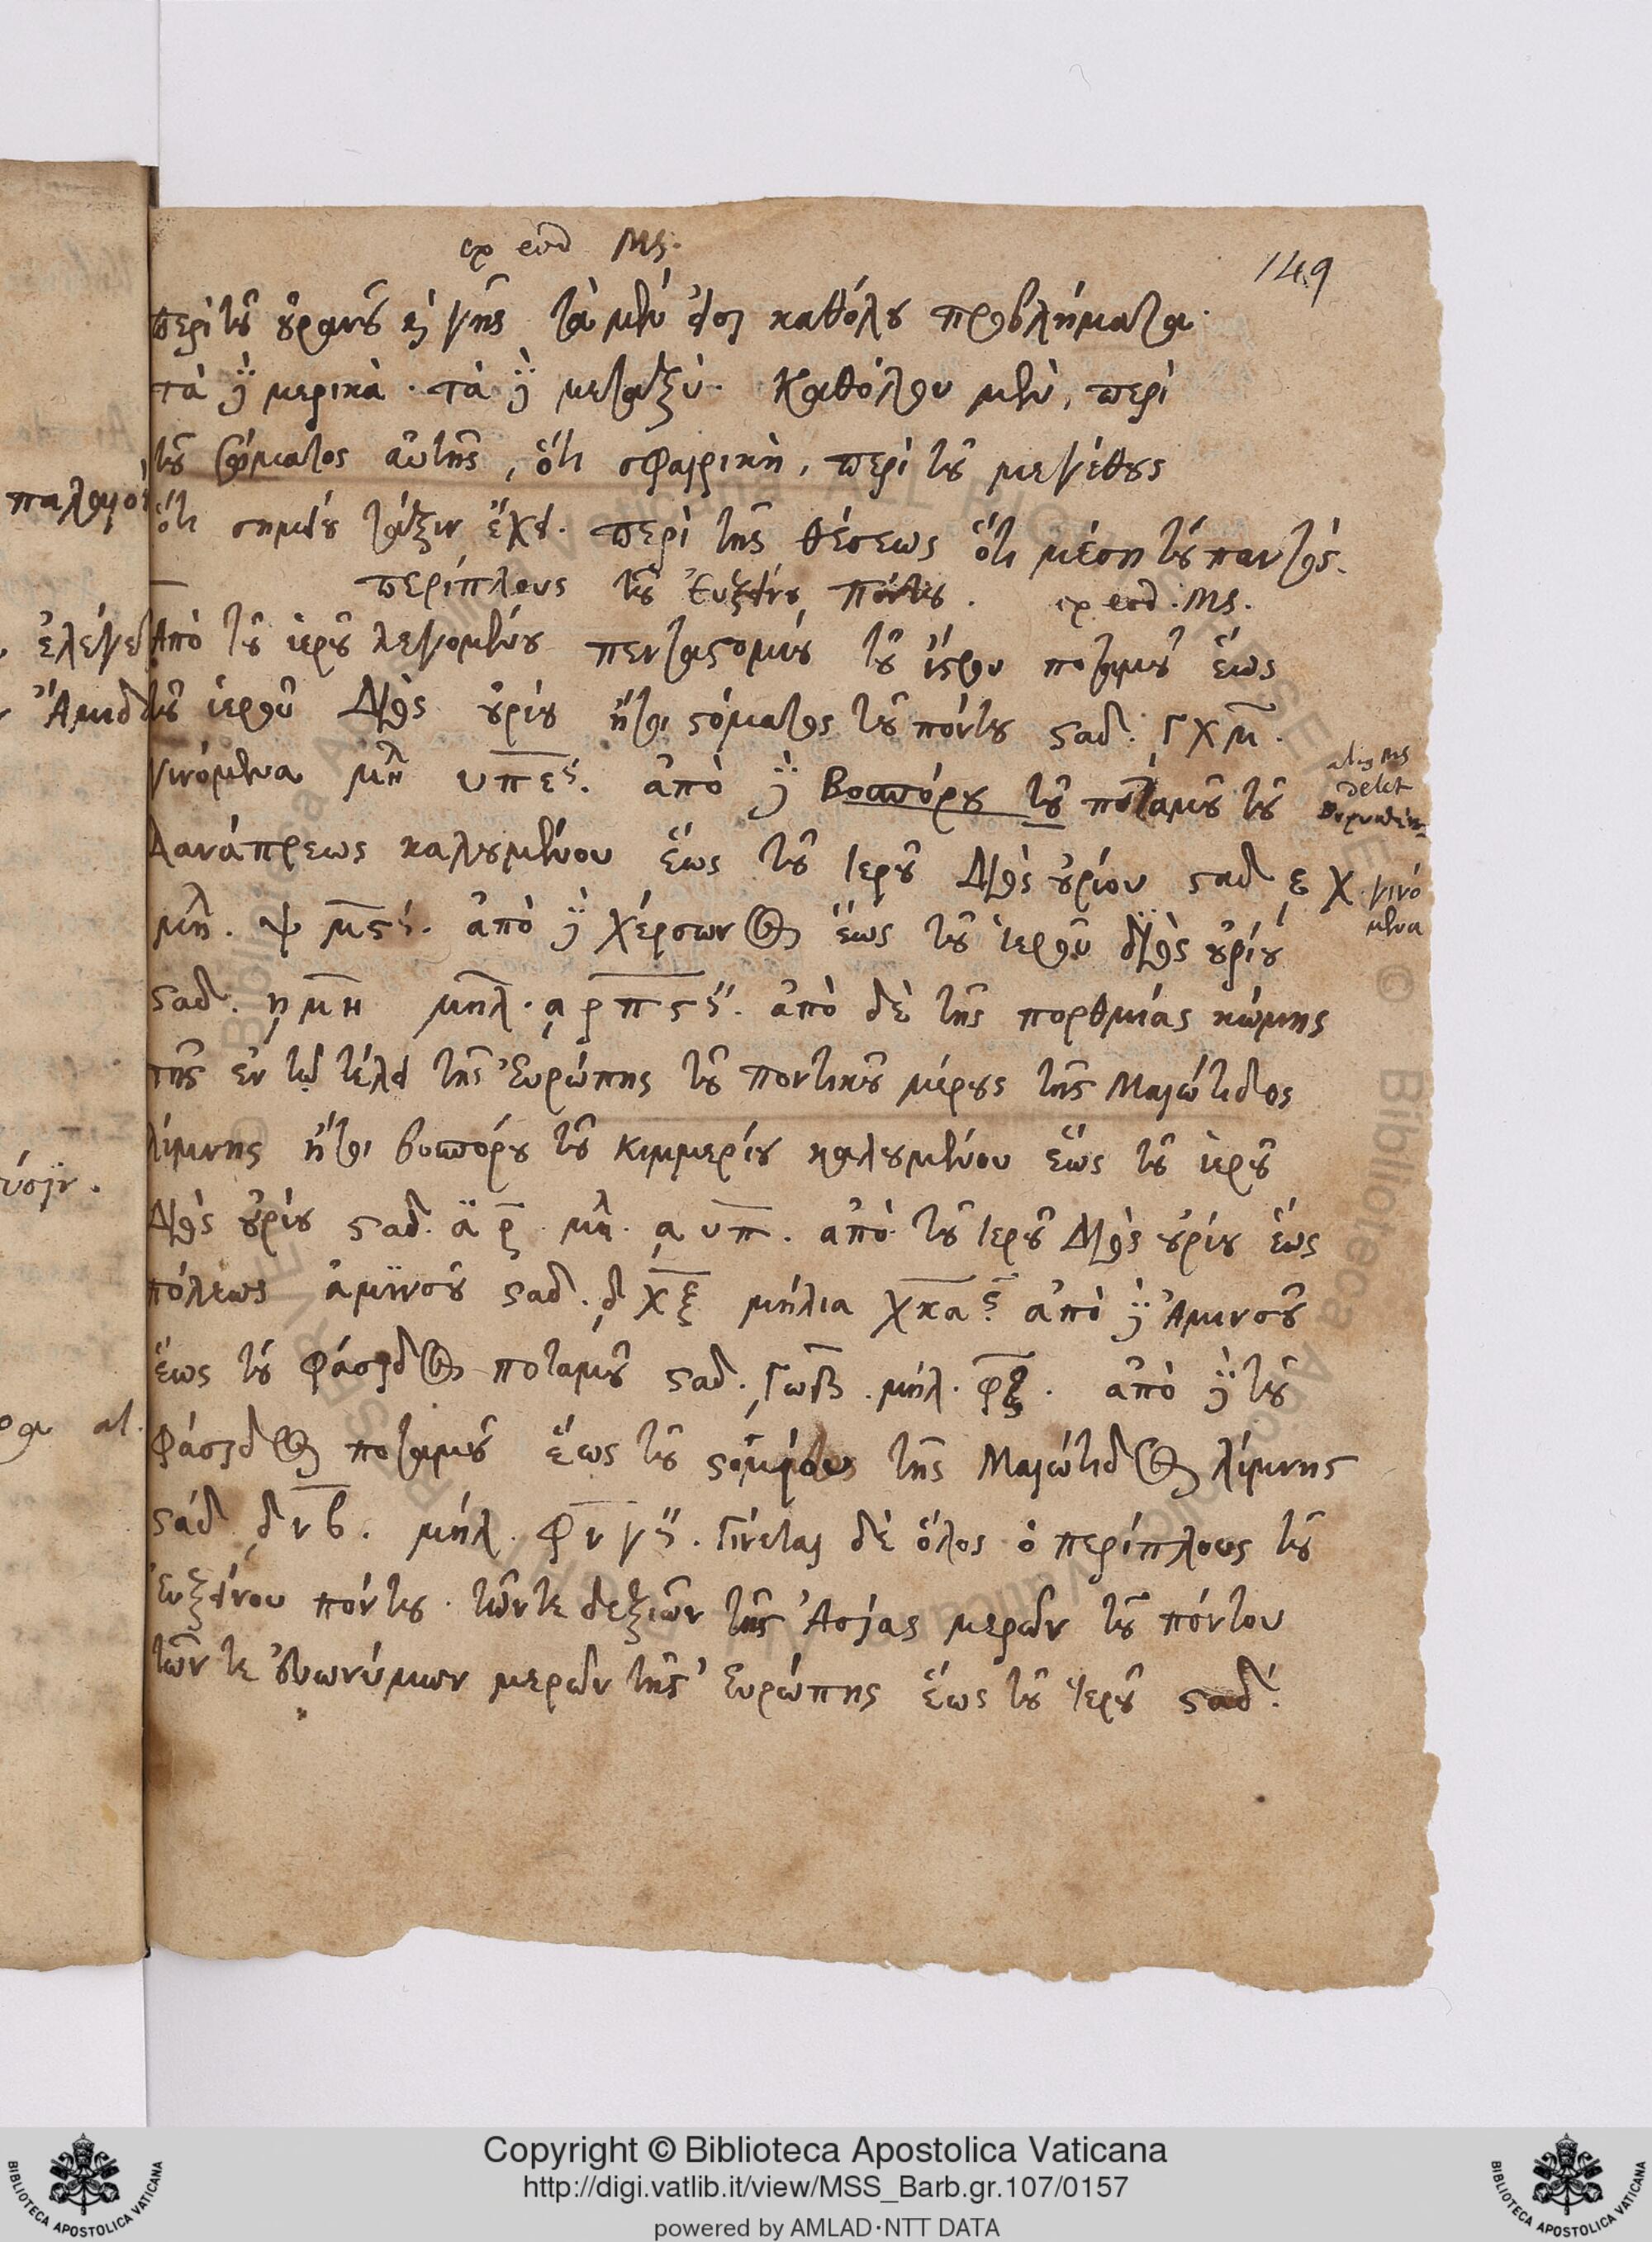 ex eod Ms.
149
περὶ τοῦ οὐρανοῦ καὶ γῆς τὰ μέν εἰσι καθόλου προβλήματα·
τὰ δὲ μερικὰ· τὰ δὲ μεταξύ· καθόλου μὲν, περὶ
τοῦ σχήματος αὐτῆς, ὅτι σφαιρικὴ, περὶ τοῦ μεγέθους
ὅτι σημείου τάξιν ἔχει· περὶ τῆς θέσεως ὅτι μέση τοῦ παντός.
περίπλους τοῦ Εὐξείνου πόντου. ex eod. Ms.
Ἀπὸ τοῦ ἱεροῦ λεγομένου πενταστόμου τοῦ ἴστρου ποταμοῦ ἕως
τοῦ ἱεροῦ Διὸς οὐρίου ἤτοι στόματος τοῦ πόντου σταδ. ͵γχμ.
γινόμενα μηλ υπεϛ. ἀπὸ δὲ Βοσπόρου τοῦ ποταμοῦ τοῦ
alius Ms
delet
Δανάπρεως καλουμένου ἕως τοῦ ἱεροῦ Διὸς οὐρίου σταδ ͵ε χ γινό
μενα
μηλ. ψ μϛ. ἀπὸ δὲ χέρσωνος ἕως τοῦ ἱεροῦ Διὸς οὐρίου
σταδ. ͵η μη μηλ. ͵α ρπϛ. ἀπὸ δὲ τῆς πορθμίας κώμης
τῆς ἐν τῷ τέλει τῆς Εὐρώπης τοῦ ποντικοῦ μέρους τῆς Μαιώτιδος
λίμνης ἤτοι βοσπόρου τοῦ κιμμερίου καλουμένου ἕως τοῦ ἱεροῦ
Διὸς οὐρίου σταδ. ἄ ρ μηλ. ͵α υπ. ἀπὸ τοῦ ἱεροῦ Διὸς οὐρίου ἕως
πόλεως ἀμινσοῦ σταδ. ͵δ χξ μήλια χκα ϛ ἀπὸ δὲ Ἀμινσοῦ
ἕως τοῦ Φάσιδος ποταμοῦ σταδ. ͵γωβ. μήλ. φξ. ἀπὸ δὲ τοῦ
Φάσιδος ποταμοῦ ἕως τοῦ στομίου τῆς Μαιώτιδος λίμνης
στάδ ͵δνβ. μήλ. φνγ. Γίνεται δὲ ὅλος ὁ περίπλους τοῦ
εὐξείνου πόντου· τῶν τε δεξιῶν τῆς Ἀσίας μερῶν τοῦ πόντου
τῶν τε εὐωνύμων μερῶν τῆς Εὐρώπης ἕως τοῦ ἱεροῦ σταδ.
παλαιοὶ
ἐλέγετ
Ἀμιδ
ύσιν.
al.
Copyright © Biblioteca Apostolica Vaticana
http://digi.vatlib.it/view/MSS_Barb.gr.107/0157
powered by AMLAD·NTT DATA
BIBLIOTECA APOSTOLICA VATICANA
BIBLIOTECA APOSTOLICA VATICANA